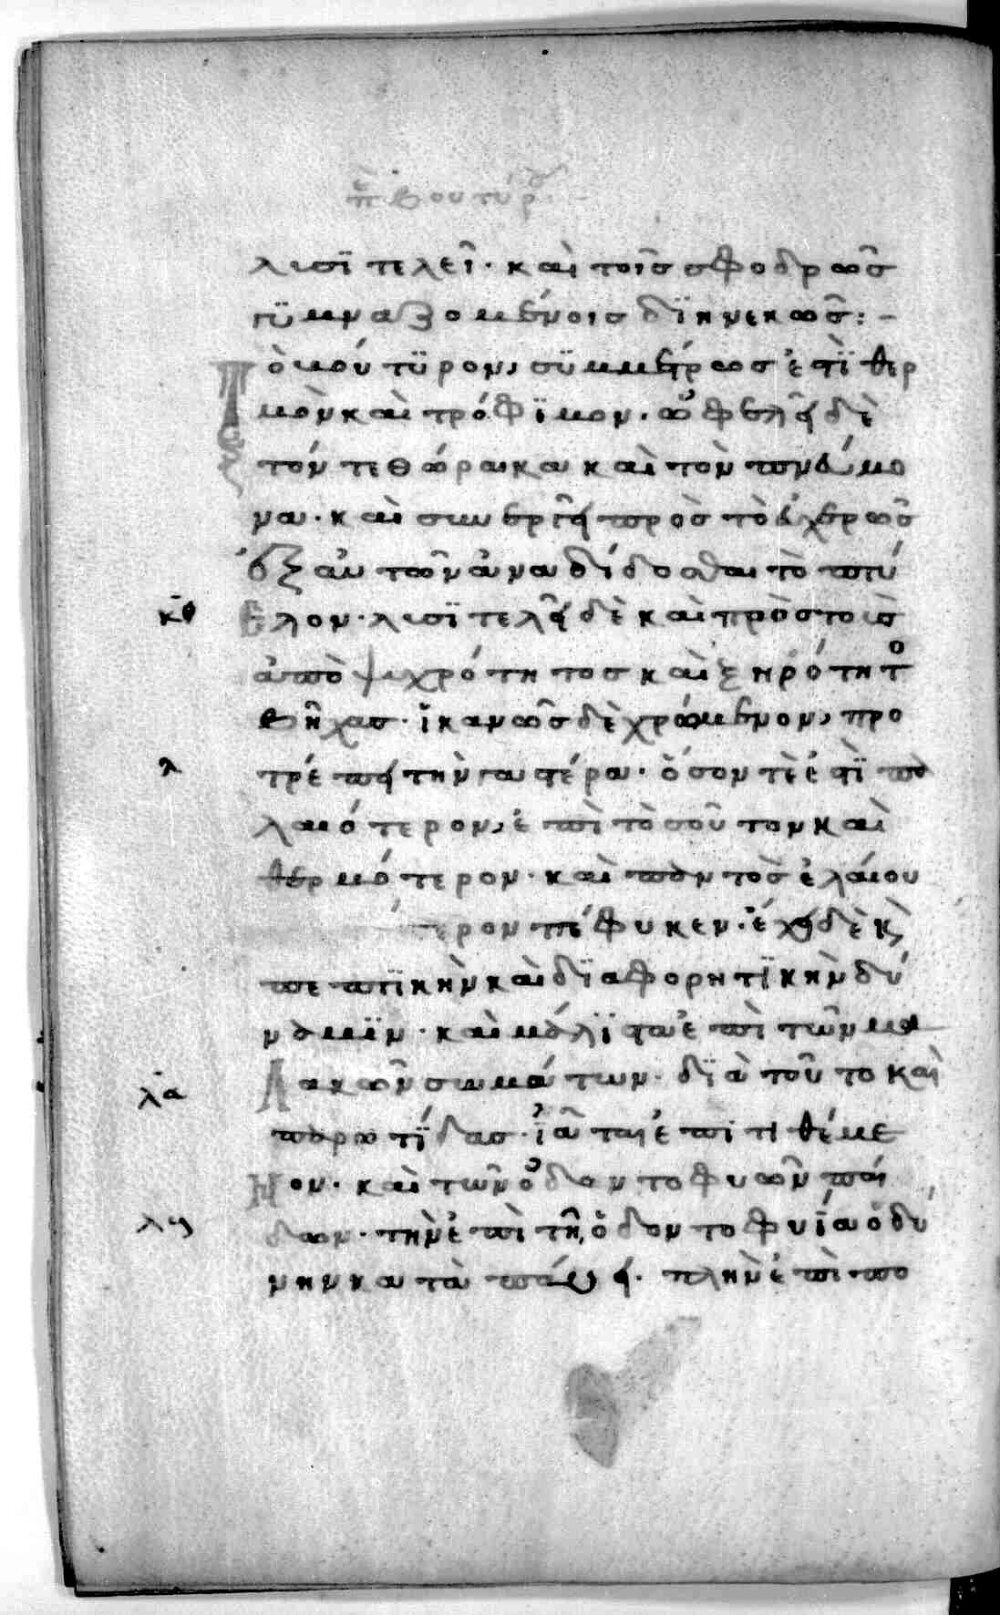 π βουτύρ
λυσϊτελεῖ· καὶ τοῖς σφοδρῶς
γϋμναζομένοις δϊηνεκῶς:-
Τὸ βούτϋρον, σϋμμέτρως ἐστῒ θερ
μὸν καὶ τρόφϊμον· ὠφελεῖ δὲ
τόν τε θώρακα καὶ τὸν πνεύμο
να· καὶ συνεργεῖ πρὸς τὸ εὐχερῶς
ἐξ αὐτῶν ἀναδίδοσθαι τὸ πτύ
κθ ελον· λυσϊτελεῖ δὲ καὶ πρὸς τοὺς
ἀπὸ ψυχρότητος καὶ ξηρότητο
βῆχας· ἱκανῶς δὲ χρώμενον, προ
λ τρέπει τὴν γαστέρα· ὅσον δὲ ἐστῒ πα
λαιότερον, ἐπὶ τοσοῦτον καὶ
θερμότερον· καὶ παντὸς ἐλαίου
τερον πέφυκεν· ἔχει δὲ κ
πεπτϊκὴν καὶ δϊαφορητϊκὴν δύ
ναμϊν· καὶ μάλϊστα ἐπὶ τῶν μα
λα λακῶν σωμάτων· δϊὰ τοῦτο καὶ
παρωτΐδας ἰᾶται ἐπιτιθέμε
νον· καὶ τῶν ὀδοντοφυῶν παί
λβ δων· τὴν ἐπὶ τῇ ὀδοντοφυΐα ὀδύ
νην καταπαύει· πλὴν ἐπιπο